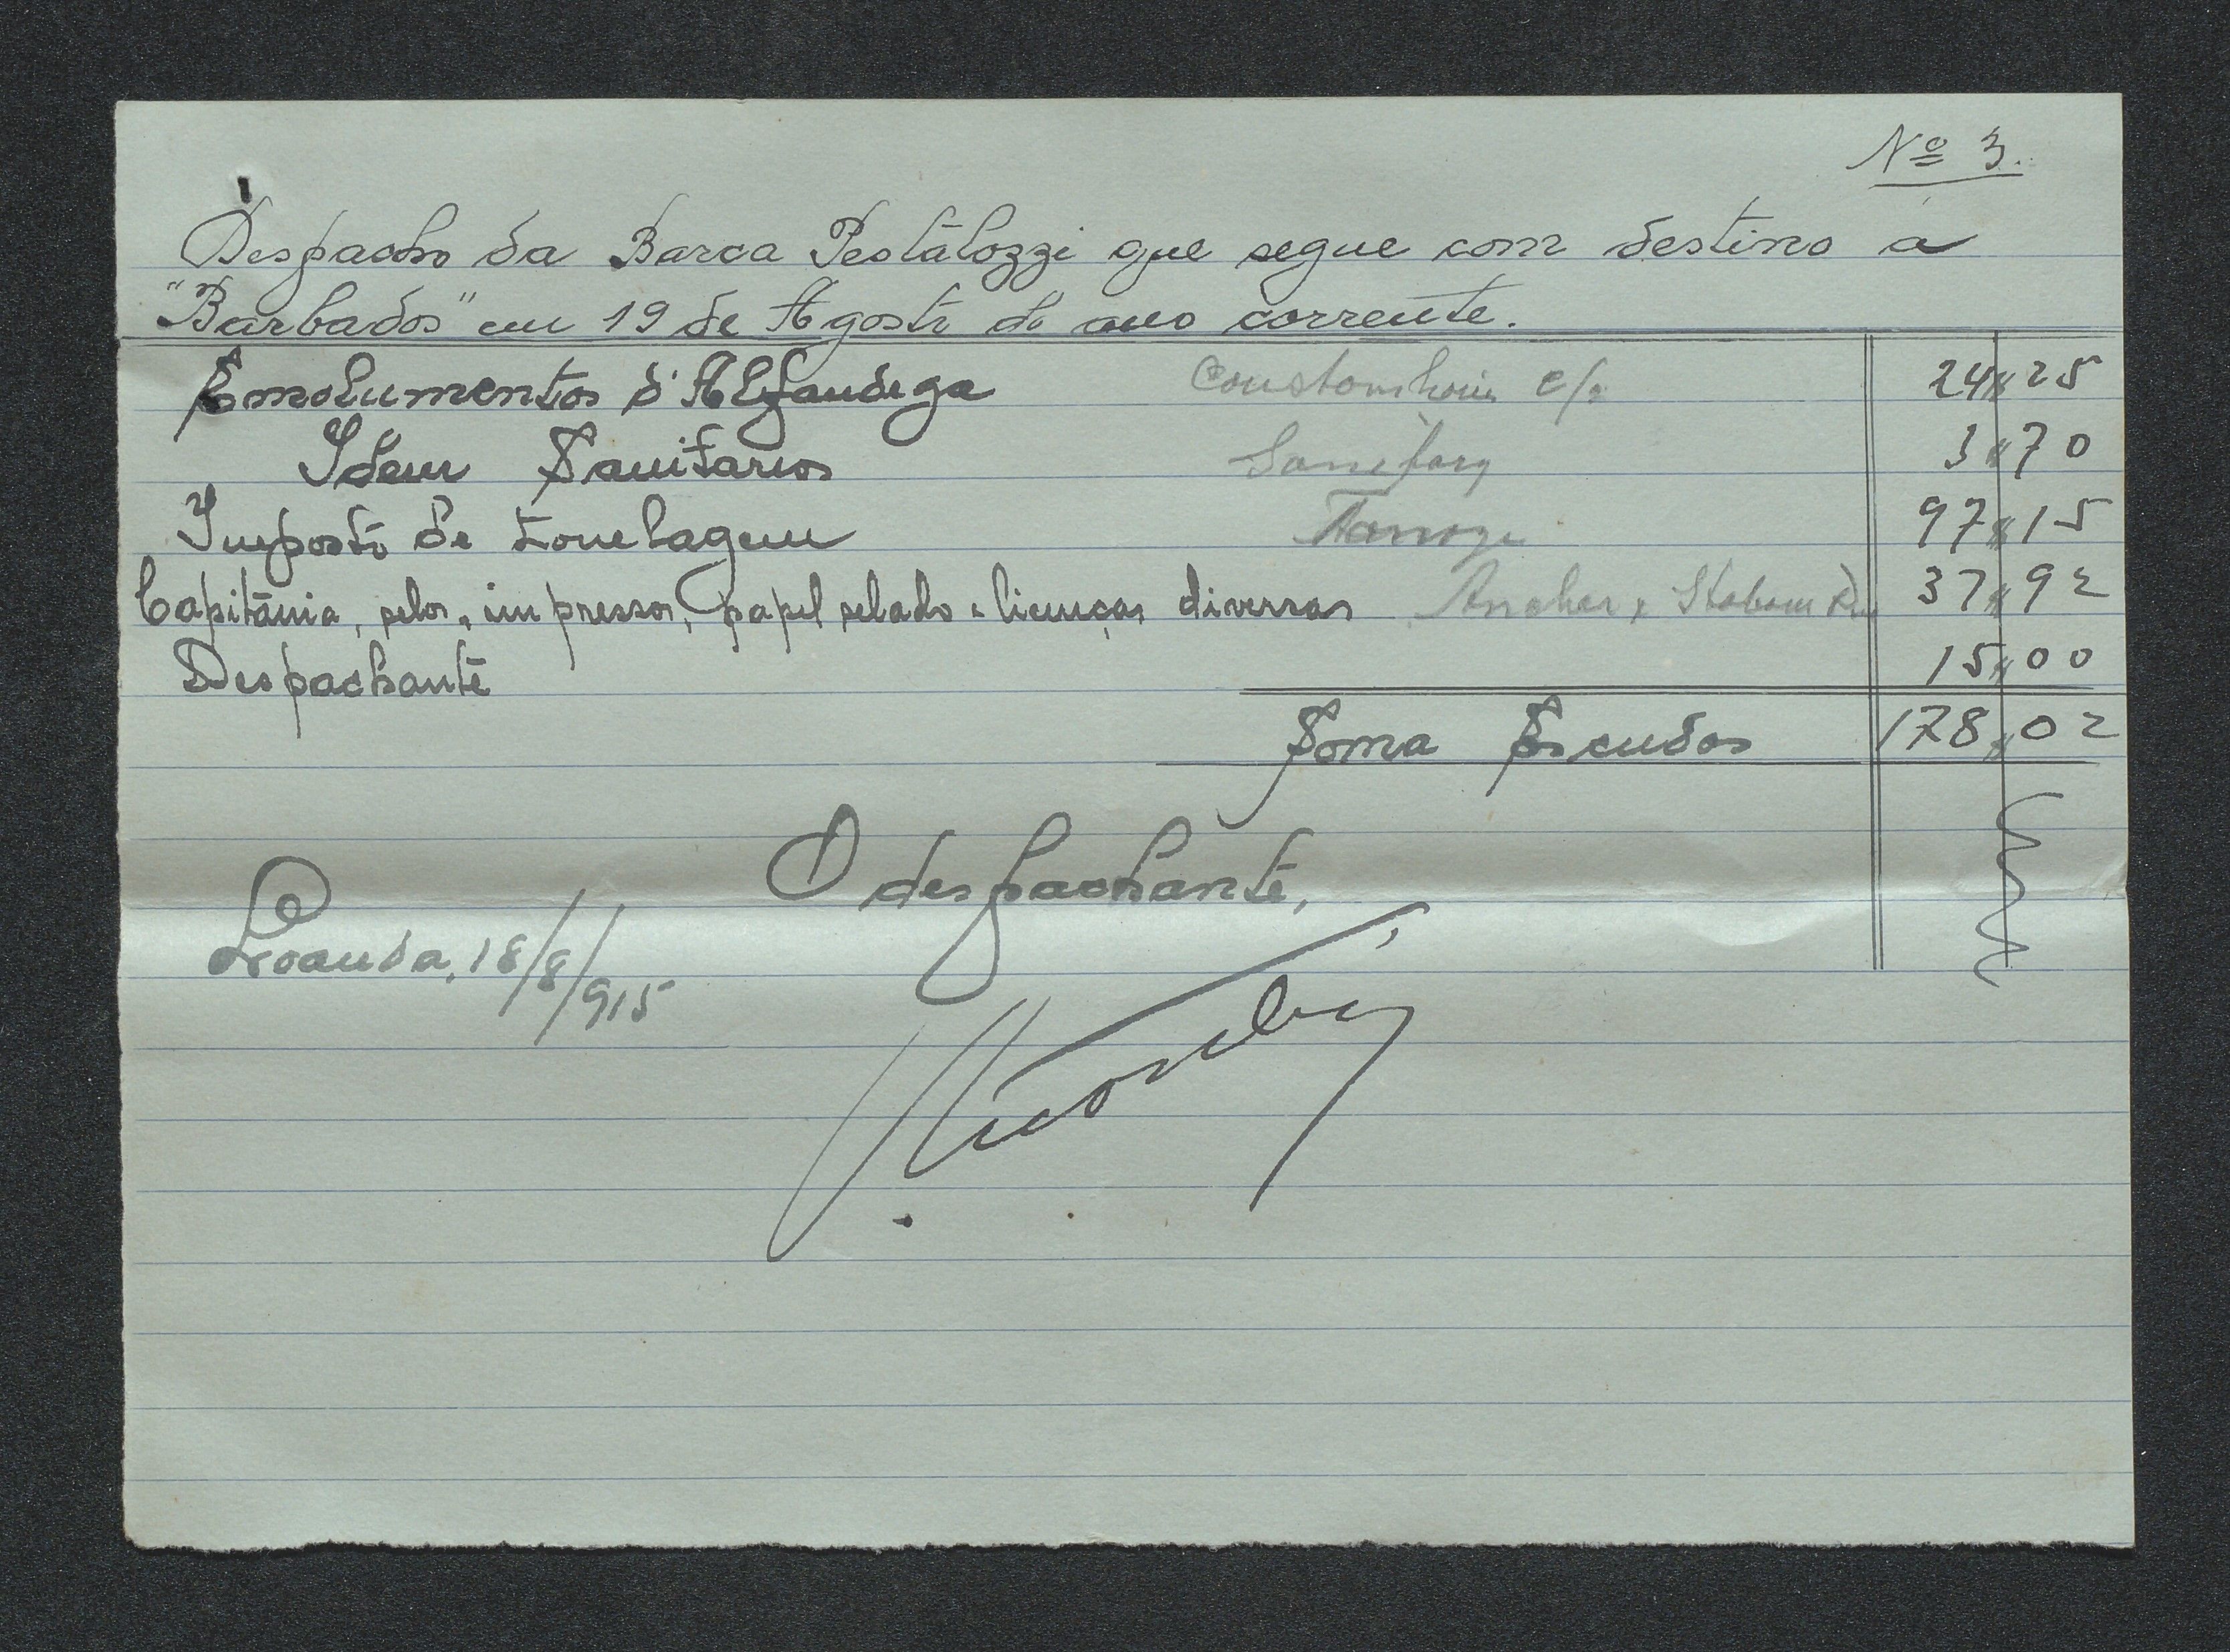 Nº 3.
Despacho da Barca Pestálozzi que segue com destino a
"Barbados" em 19 de Agosto do ano corrente.
Emolumentos d'Alfandega 24 25
Idem Sanitarios Sanitary 3 70
Imposto de tonelagem 97 15
Capitánia, selos, impressos, papel selado e licenças diversas Anchor 37 92
Despachante 15 00
Soma Escudos 178 02
O despachante,
Loanda, 18/8/915